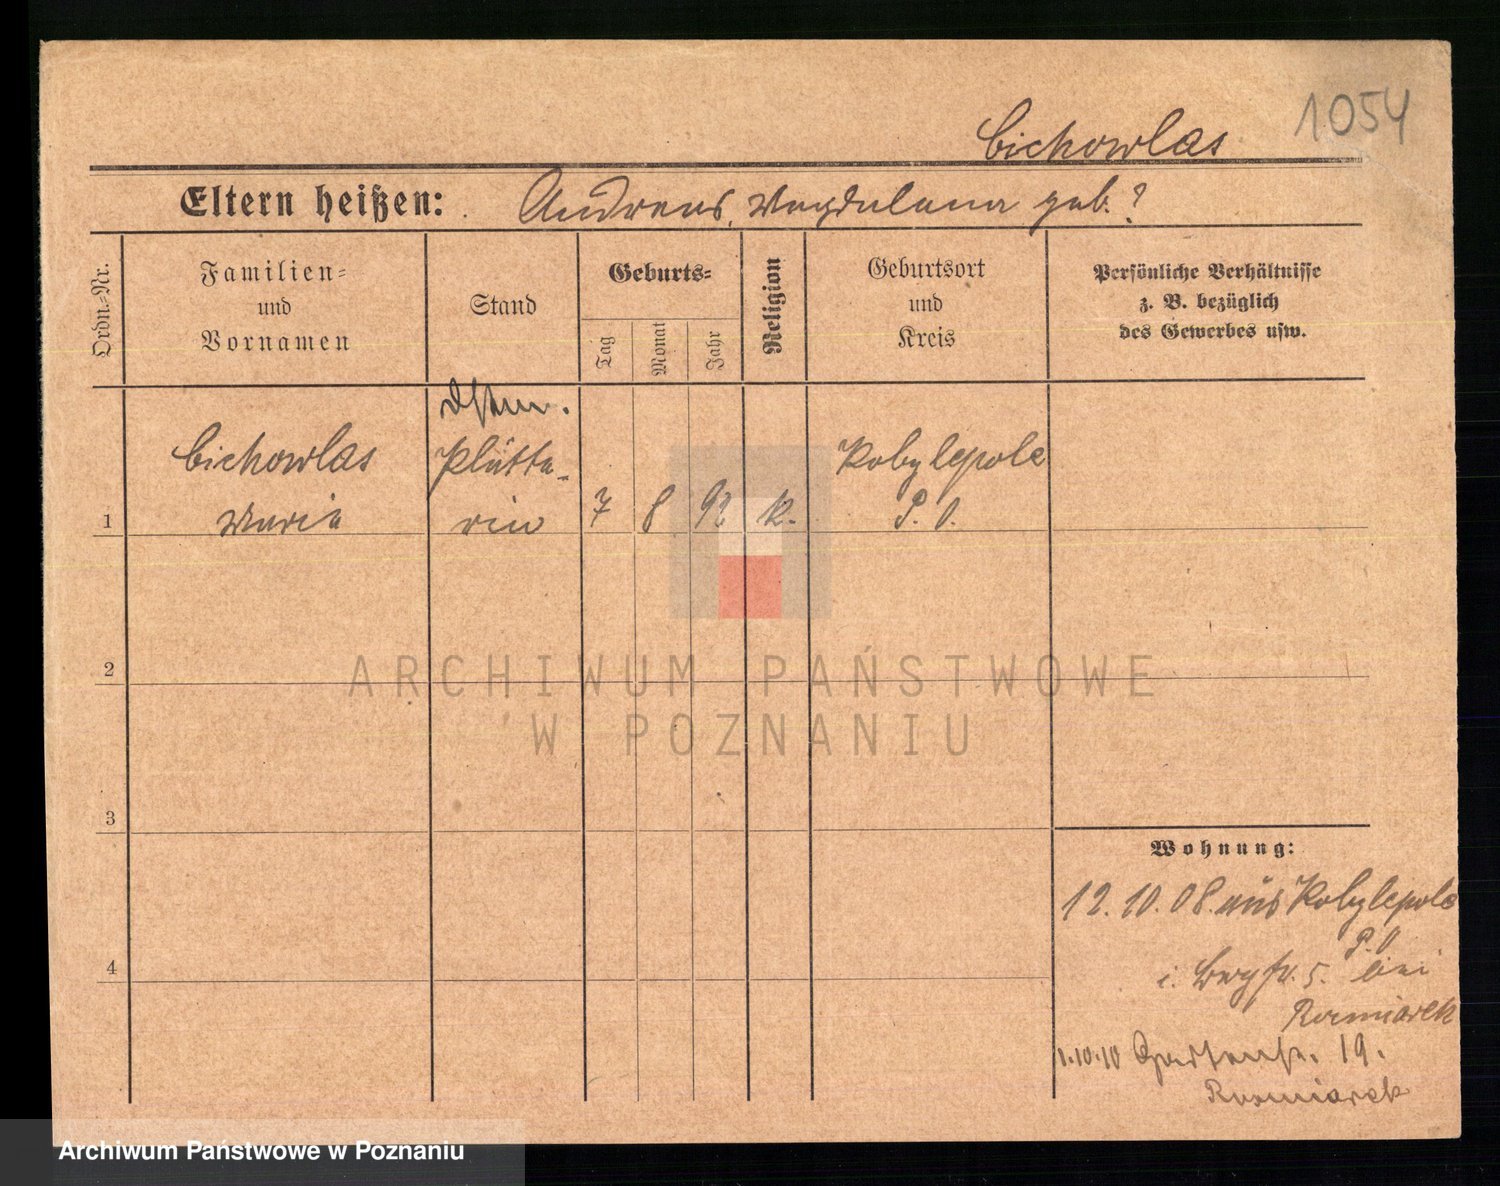 1054
Cichowlas
Eltern heißen: Andreas, Magdalena geb. ?
Ordn.-Nr.
Familien-
und
Vornamen
Stand
Geburts-
Tag
Monat
Jahr
Religion
Geburtsort
und
Kreis
Persönliche Verhältnisse
z. B. bezüglich
des Gewerbes usw.
Cichowlas
Maria
Plätte-
rin
1
7
8
92
k.
Kobylepole
P. O.
2
3
4
Wohnung:
12.10.08. aus Kobylepole
P. O
i. Bergstr. 5. bei
1.10.10 Gartenstr. 19.
ARCHIWUM PAŃSTWOWE
W POZNANIU
Archiwum Państwowe w Poznaniu